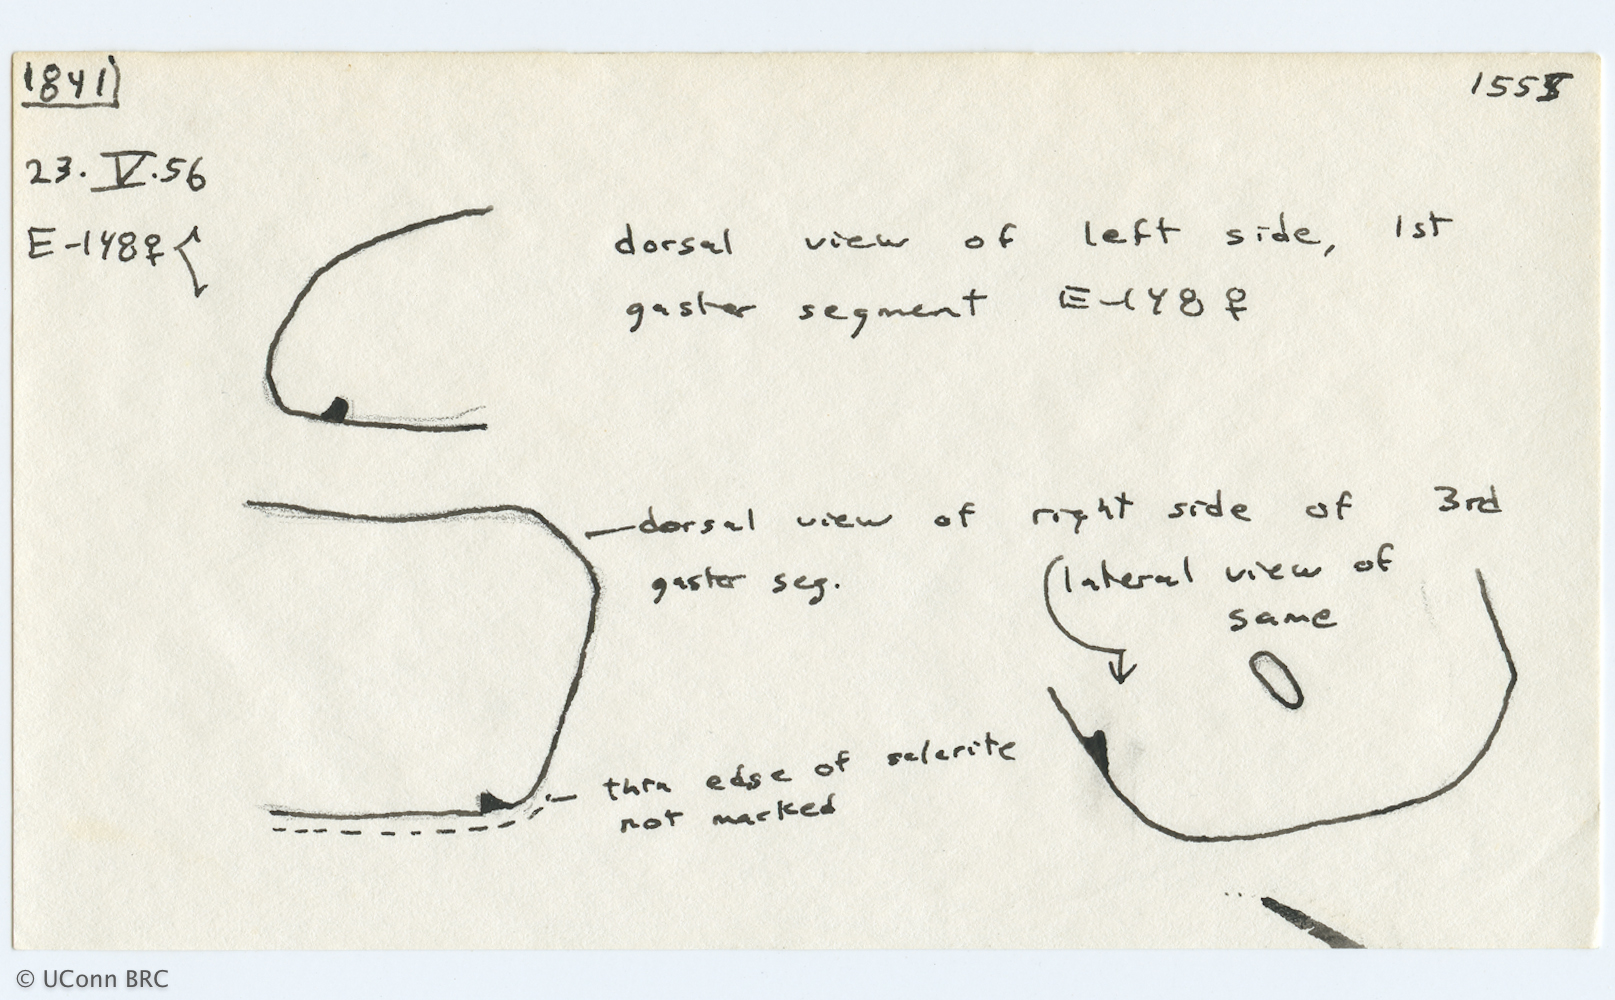 1841
23.V.56
E-148♀
dorsal view of left side, 1st
gaster segment E-148♀
dorsal view of right side of 3rd
gaster seg.
lateral view of
same
thin edge of sclerite
not marked
© UConn BRC